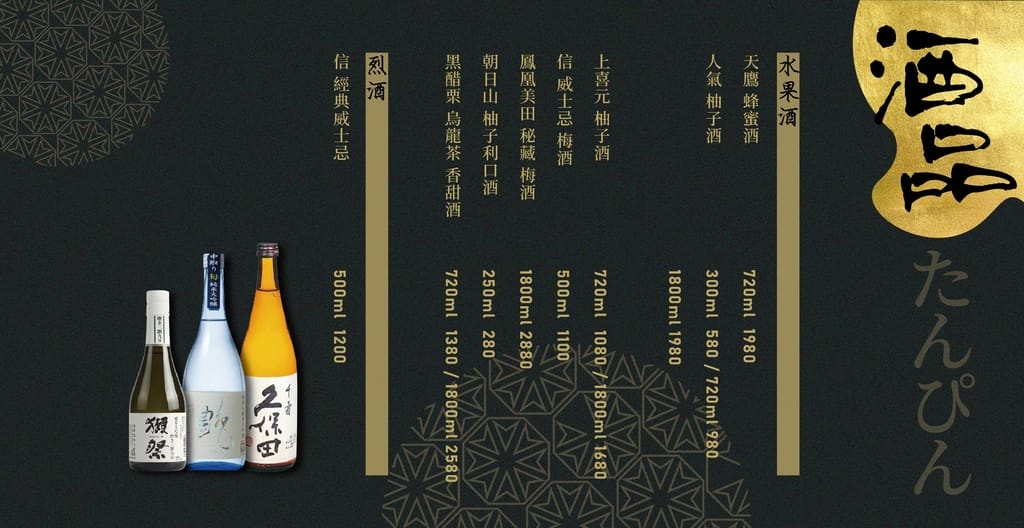 酒品
たんぴん
水果酒
天鷹 蜂蜜酒 720ml 1980
人氣 柚子酒 300ml 580 / 720ml 980
1800ml 1980
上喜元 柚子酒 720ml 1080 / 1800ml 1680
信 威士忌 梅酒 500ml 1100
鳳凰美田 秘藏 梅酒 1800ml 2880
朝日山 柚子利口酒 250ml 280
黑醋栗 烏龍茶 香甜酒 720ml 1380 / 1800ml 2580
烈酒
信 經典威士忌 500ml 1200
千壽
久保田
中取り 純米大吟醸
艶
獺祭